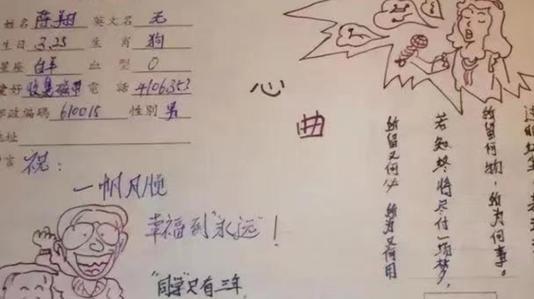 姓名 陈翔 英文名 无
生日 3.25 生肖 狗
星座 白羊 血型 O
爱好 收集磁带 電話 4106353
邮政编碼 610015 性別 男
地址
言 祝：
一帆风顺
幸福到"永远"！
"同学"只有三年
心曲
纷留何物，纷为何事。
若知终将尽付一场梦，
纷留又何必 纷为又何用